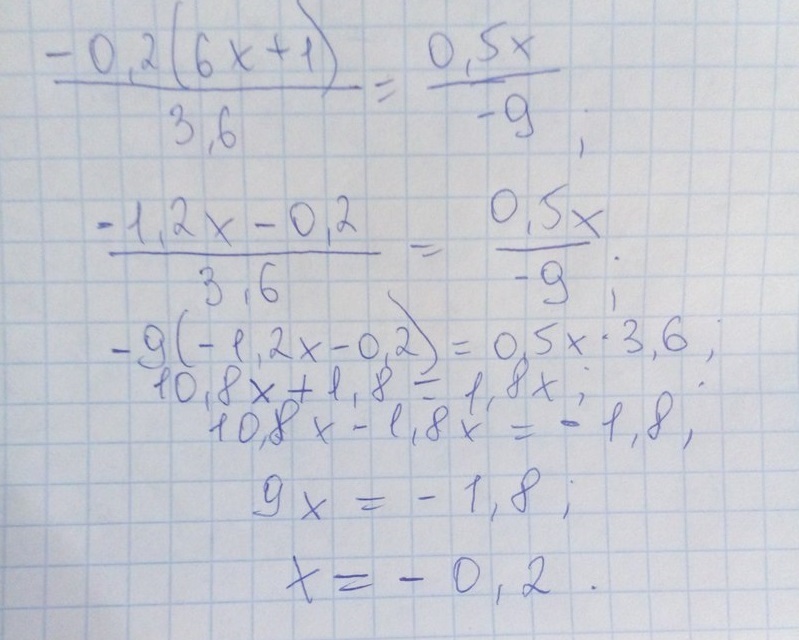 -0,2(6x+1)/3,6 = 0,5x/-9;
-1,2x-0,2/3,6 = 0,5x/-9;
-9(-1,2x-0,2) = 0,5x·3,6;
10,8x+1,8 = 1,8x;
10,8x-1,8x = -1,8;
9x = -1,8;
x = -0,2.